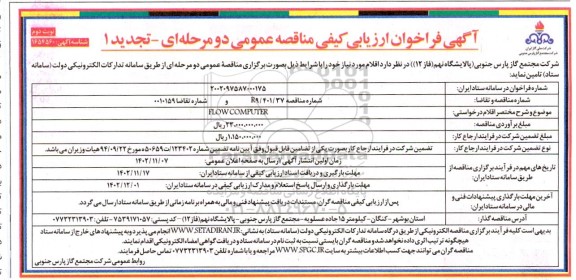 نوبت دوم
آگهی فراخوان ارزیابی کیفی مناقصه عمومی دو مرحله‌ای - تجدید ۱
شرکت مجتمع گاز پارس جنوبی (پالایشگاه نهم (فاز ۱۲)) در نظر دارد اقلام مورد نیاز خود را با شرایط ذیل بصورت برگزاری مناقصه عمومی دو مرحله ای از طریق سامانه تدارکات الکترونیکی دولت (سامانه ستاد) تامین نماید:
شماره فراخوان در سامانه ستاد ایران: ۲۰۰۲۰۹۷۵۸۷۰۰۰۱۷۵
شماره مناقصه و تقاضا: شماره مناقصه R9/401/37 و شماره تقاضا ۰۰۱۰۱۵۹
موضوع و شرح مختصر اقلام درخواستی: FLOW COMPUTER
مبلغ برآوردی مناقصه: ۲۳,۰۰۰,۰۰۰,۰۰۰ ریال
مبلغ تضمین شرکت در فرایند ارجاع کار: ۱,۱۵۰,۰۰۰,۰۰۰ ریال
نوع تضمین شرکت در فرایند ارجاع کار: تضمین شرکت در فرایند ارجاع کار بصورت یکی از تضامین قابل قبول وفق آیین نامه تضمین شماره ۱۲۳۴۰۲/ت۵۰۶۵۹ه مورخ ۹۴/۰۹/۲۲ هیات وزیران می باشد.
تاریخ های مهم در فرآیند برگزاری مناقصه از طریق سامانه ستاد ایران:
زمان اولین انتشار آگهی / ارسال به صفحه اعلان عمومی: ۱۴۰۲/۱۱/۰۷
مهلت بارگیری و دریافت اسناد ارزیابی کیفی از سامانه ستاد ایران: ۱۴۰۲/۱۱/۱۷
مهلت بارگذاری و ارسال پاسخ استعلام و مدارک ارزیابی کیفی در سامانه ستاد ایران: ۱۴۰۲/۱۲/۰۱
آخرین مهلت بارگذاری پیشنهادات فنی و مالی در سامانه ستاد ایران: پس از ارزیابی کیفی مناقصه گران، مستندات دریافت پیشنهاد فنی و مالی به همراه برنامه زمانی از طریق سامانه ستاد ارسال می گردد.
آدرس مناقصه گذار: استان بوشهر - کنگان - کیلومتر ۱۵ جاده عسلویه - مجتمع گاز پارس جنوبی - پالایشگاه نهم (فاز ۱۲) - کد پستی: ۷۵۳۹۱۷۱۰۵۷ - تلفن: ۰۷۷۳۲۳۱۳۹۰۳
بدیهی است کلیه فرآیند برگزاری مناقصه الکترونیکی از طریق درگاه سامانه تدارکات الکترونیکی دولت (سامانه ستاد) به نشانی: WWW.SETADIRAN.IR انجام می پذیرد و به پیشنهادهای خارج از سامانه ستاد هیچگونه ترتیب اثری داده نخواهد شد و مناقصه گران بایستی نسبت به ثبت نام در سامانه ستاد و دریافت گواهی امضاء الکترونیکی اقدام نمایند.
مناقصه گران می توانند جهت کسب اطلاعات بیشتر به سایت WWW.SPGC.IR مراجعه و یا با شماره تلفن ۰۷۷۳۲۳۱۳۹۰۳ تماس حاصل فرمایند.
روابط عمومی شرکت مجتمع گاز پارس جنوبی